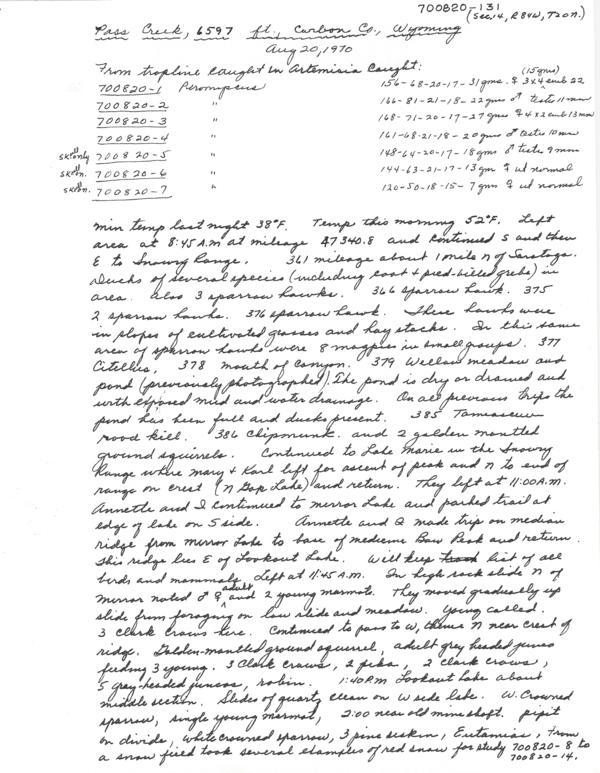 700820-131
(Sec. 14, R84W, T20N.)
Pass Creek, 6597 ft., Carbon Co., Wyoming
Aug 20, 1970
From trapline caught in Artemisia Caught: (15 gms)
700820-1 Peromyscus 156-68-20-17-31 gms. ♀ 3x4 emb 22
700820-2 " 166-81-21-18-22 gms ♂ testes 11 mm
700820-3 " 168-71-20-17-27 gms ♀ 4x2 emb 13 mm
700820-4 " 161-68-21-18-20 gms ♂ testes 10 mm
skull only 700820-5 " 148-64-20-17-18 gms ♂ testes 9 mm
skull on. 700820-6 " 144-63-21-17-13 gm ♀ ut normal
skull on. 700820-7 " 120-50-18-15-7 gms ♀ ut normal
min temp last night 38°F. Temp this morning 52°F. Left
area at 8:45 A.M at mileage 47340.8 and continued S and then
E to Snowy Range. 361 mileage about 1 mile N of Saratoga.
Ducks of several species (including coot + pied-billed grebe) in
area. Also 3 sparrow hawks. 366 sparrow hawk. 375
2 sparrow hawks. 376 sparrow hawk. These hawks were
in slopes of cultivated grasses and hay stacks. In this same
area of sparrow hawks were 8 magpies in small groups. 377
Citellus, 378 mouth of canyon. 379 Willow meadow and
pond (previously photographed). The pond is dry or drained and
with exposed mud and water drainage. On all previous trips the
pond has been full and ducks present. 385 Tamiasciurus
road kill. 386 Chipmunk. and 2 golden mantled
ground squirrels. Continued to Lake Marie in the Snowy
Range where Mary + Karl left for ascent of peak and N to end of
range on crest (N Gap Lake) and return. They left at 11:00 A.M.
Annette and I continued to Mirror Lake and parked trail at
edge of lake on S side. Annette and I made trip on median
ridge from Mirror Lake to base of Medicine Bow Peak and return.
This ridge lies E of Lookout Lake. Will keep list of all
birds and mammals. Left at 11:45 A.M. In high rock slide N of
Mirror noted ♂ ♀ adult and 2 young marmots. They moved gradually up
slide from foraging on low slide and meadow. Young called.
3 Clark Crows here. Continued to pass to W, thence N near crest of
ridge. Golden-mantled ground squirrel, adult grey headed junco
feeding 3 young. 3 Clark Crows, 2 pika, 2 Clark Crows,
5 gray-headed juncos, robin. 1:40 P.M. Lookout Lake about
middle section. Slides of quartz clean on W side lake. W. Crowned
sparrow, single young marmot, 2:00 near old mine shaft. pipit
on divide, white crowned sparrow, 3 pine siskin, Eutamias, From
a snow field took several examples of red snow for study 700820-8 to
700820-14.